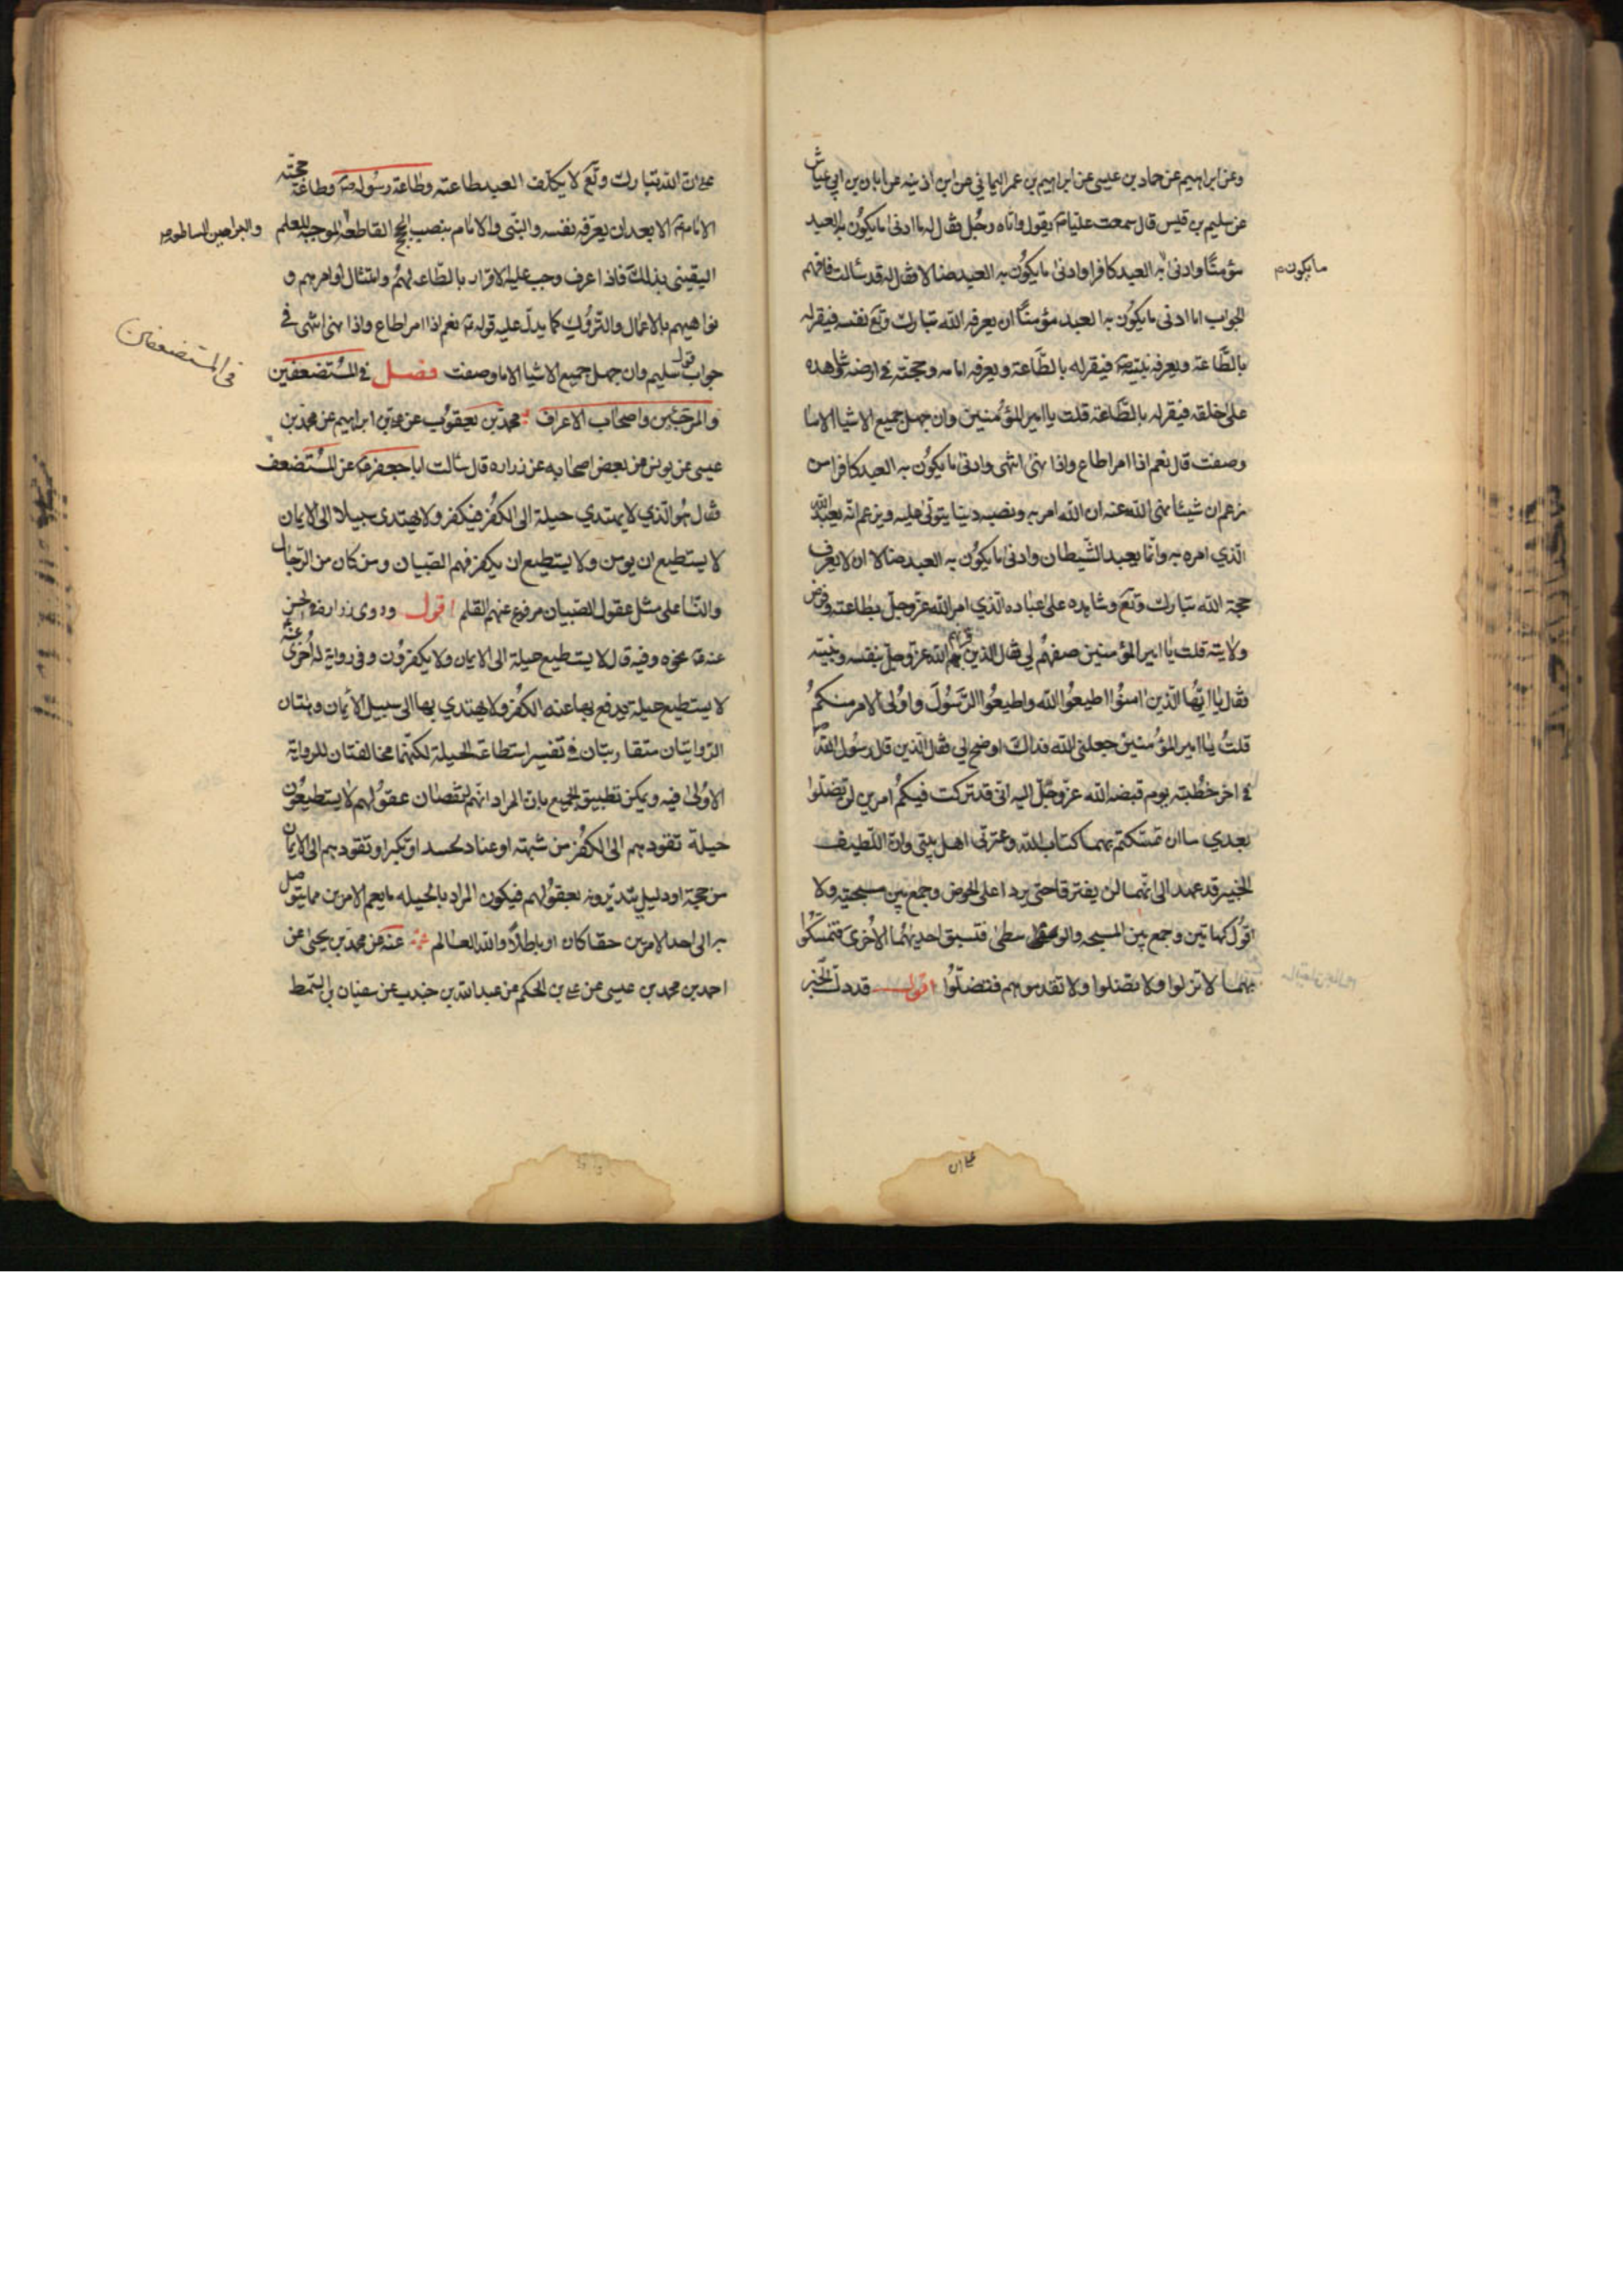 وعن ابراهيم عن حماد بن عيسى عن ابراهيم بن عمر اليماني عن ابن اذينه عن ابان بن ابي عياش
عن سليم بن قيس قال سمعت عليا ع يقول واتاه رجُل فقال له ما ادنى ما يكوُن به العبد
مؤمنًا وادنىٰ به العبد كافرا وادنىٰ ما يكوُن به العبد ضالا فقال له قد سألت فافهم
ما يكون
الجواب اما ادنى ما يكوُن به العبد مؤمنًا ان يعرفه الله تبارك وتع نفسه فيقر له
بالطَّاعة ويعرفه نبيّه ص فيقر له بالطَّاعة ويعرفه امامه وحجته في ارضه وشاهده
على خلقه فيقر له بالطَّاعة قلت يا امير المؤمنين وان جهل جميع الاشيا الا ما
وصفت قال نعم اذا امر اطاع واذا نهى انتهى وادنى ما يكوُن به العبد كافرا من
زعم ان شيئا نهى الله عنه ان الله امر به ونصبه دينا يتولىٰ عليه ويزعم انّه يعبد الله
الّذي امره به وانما يعبد الشّيطان وادنى ما يكوُن به العبد ضالا ان لا يعرف
حجة الله تبارك وتع وشاهده على عباده الّذي امر الله عزّ وجلّ بطاعته وفرض
ولايته قلت يا امير المؤمنين صفهم لي فقال الذين قرنهم الله عزّ وجلّ بنفسه ونبيّه
فقال يا ايّها الّذين امنوُا اطيعوُا الله واطيعوُا الرّسوُلَ واوُلى الامر منكمُ
قلتُ يا امير المؤمنين جعلنى الله فداك اوضح لي فقال الّذين قال رسوُل الله ص
في اخر خطُبته يوم قبضه الله عزّ وجلّ اليه انّى قد تركت فيكمُ امرين لن تضلّوا
بعدي ما ان تمسّكتم بهما كتاب الله وعترتى اهل بيتى وان اللّطيف
الخبير قد عهد الى انّهما لن يفترقا حتى يردا على الحوض وجمع بين مسبحتيه ولا
اقوُل كهاتين وجمع بين المسبحه والوسطىٰ فتسبق احديهمُا الاخُرى فتمسّكوُا
بهما لا تزلوا ولا تضلوا ولا تقدموهم فتضلّوُا اقول قد دلّ الخبر
على ان
على ان الله تبارك وتع لا يكلّف العبد بطاعته وطاعة رسوُله ص وطاعة حجّته
الامام ع الا بعد ان يعرّفه نفسه والنبّى والامام بنصب الحجج القاطعة الموجبة للعلم
والبراهين الساطعه
اليقينى بذلك فاذا عرف وجب عليه الاقرار بالطّاعه لهمُ وامتثال اوامرهم و
نواهيهم بالاعمال والتّروُك كما يدلّ عليه قوله ع نعم اذا امر اطاع واذا نهى انتهى في
جواب قول سليم وان جهل جميع الاشيا الا ما وصفت فصل في المسُتضعفين
فى المستضعفين
والمرجئين واصحاب الاعراف محمّد بن يعقوُب عن علي بن ابراهيم عن محمّد بن
عيسى عن يونس عن بعض اصحابه عن زراره قال سألت ابا جعفر ع عن المسُتضعف
فقال هوُ الّذي لا يهتدي حيلة الى الكفُر فيكفر ولا يهتدى سبيلا الى الايمان
لا يستطيع ان يومن ولا يستطيع ان يكفر فهم الصّبيان ومن كان من الرّجال
والنّسا على مثل عقول الصّبيان مرفوع عنهم القلم اقول وروى زراره في الحسن
عنه ع نحوه وفيه قال لا يستطيع حيلة الى الايمان ولا يكفروُن وفى رواية له اُخرى عنه
لا يستطيع حيلة يدفع بها عنه الكفُر ولا يهتدي بها الى سبيل الأيمان وهٰتان
الرّوايتان متقاربتان في تفسير استطاعة الحيلة لكنّهما مخالفتان للرواية
الاوُلىٰ فيه ويمكن تطبيق الجميع بان المراد انّهم لنقصان عقوُلهم لا يستطيعوُن
حيلة تقودهم الى الكفُر من شبهته او عناد كحسد او تكبر او تقودهم الى الايمان
من حجة او دليلٍ يتدبّرونه بعقوُلهم فيكون المراد بالحيله ما يعم الامرين مما يتوصل
به الى احد الامرين حقا كان او باطلًا والله العالم عنه عن محمّد بن يحيى عن
احمد بن محمد بن عيسى عن علي بن الحكم عن عبد الله بن جندب عن سفيان بن السّمط